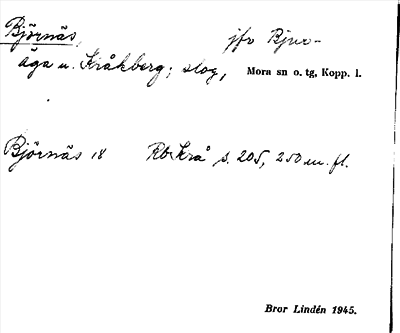 Björnäs, jfr Bjur-
äga u. Kråkberg; slog, Mora sn o. tg, Kopp. l.
Björnäs 18 Rbr Krå s. 205, 250 m. fl.
Bror Lindén 1945.